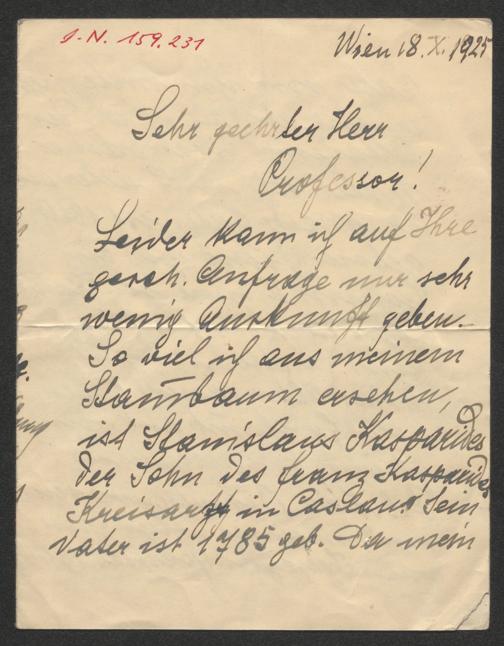 J.N. 159.231
Wien 18. X. 1925
Sehr geehrter Herr
Professor!
Leider kann ich auf Ihre
gesch. Anfrage nur sehr
wenig Auskunft geben.
So viel ich aus meinem
Stam̄baum ersehen,
ist Stanislaus Kasparides
der Sohn des Franz Kasparides
Kreisarzt in Caslau. Sein
Vater ist 1785 geb. Da mein